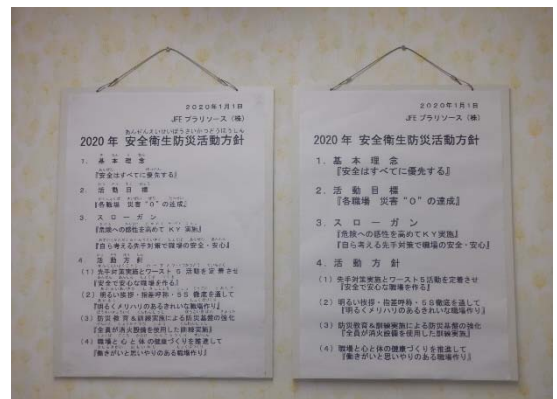 2020年1月1日
JFE プラリソース（株）
あんぜんえいせいぼうさいかつどうほうしん
2020年 安全衛生防災活動方針
1. 基本理念
『安全はすべてに優先する』
2. 活動目標
『各職場 災害"0"の達成』
3. スローガン
『危険への感性を高めて KY 実施』
『自ら考える先手対策で職場の安全・安心』
4. 活動方針
(1) 先手対策実施とワースト5活動を定着させ
『安全で安心な職場を作る』
(2) 明るい挨拶・指差呼称・5S徹底を通して
『明るくメリハリのあるきれいな職場作り』
(3) 防災教育&訓練実施による防災基盤の強化
『全員が消火設備を使用した訓練実施』
(4) 職場と心と体の健康づくりを推進して
『働きがいと思いやりのある職場作り』
2020年1月1日
JFE プラリソース（株）
2020年 安全衛生防災活動方針
1. 基本理念
『安全はすべてに優先する』
2. 活動目標
『各職場 災害"0"の達成』
3. スローガン
『危険への感性を高めて KY 実施』
『自ら考える先手対策で職場の安全・安心』
4. 活動方針
(1) 先手対策実施とワースト5活動を定着させ
『安全で安心な職場を作る』
(2) 明るい挨拶・指差呼称・5S徹底を通して
『明るくメリハリのあるきれいな職場作り』
(3) 防災教育&訓練実施による防災基盤の強化
『全員が消火設備を使用した訓練実施』
(4) 職場と心と体の健康づくりを推進して
『働きがいと思いやりのある職場作り』